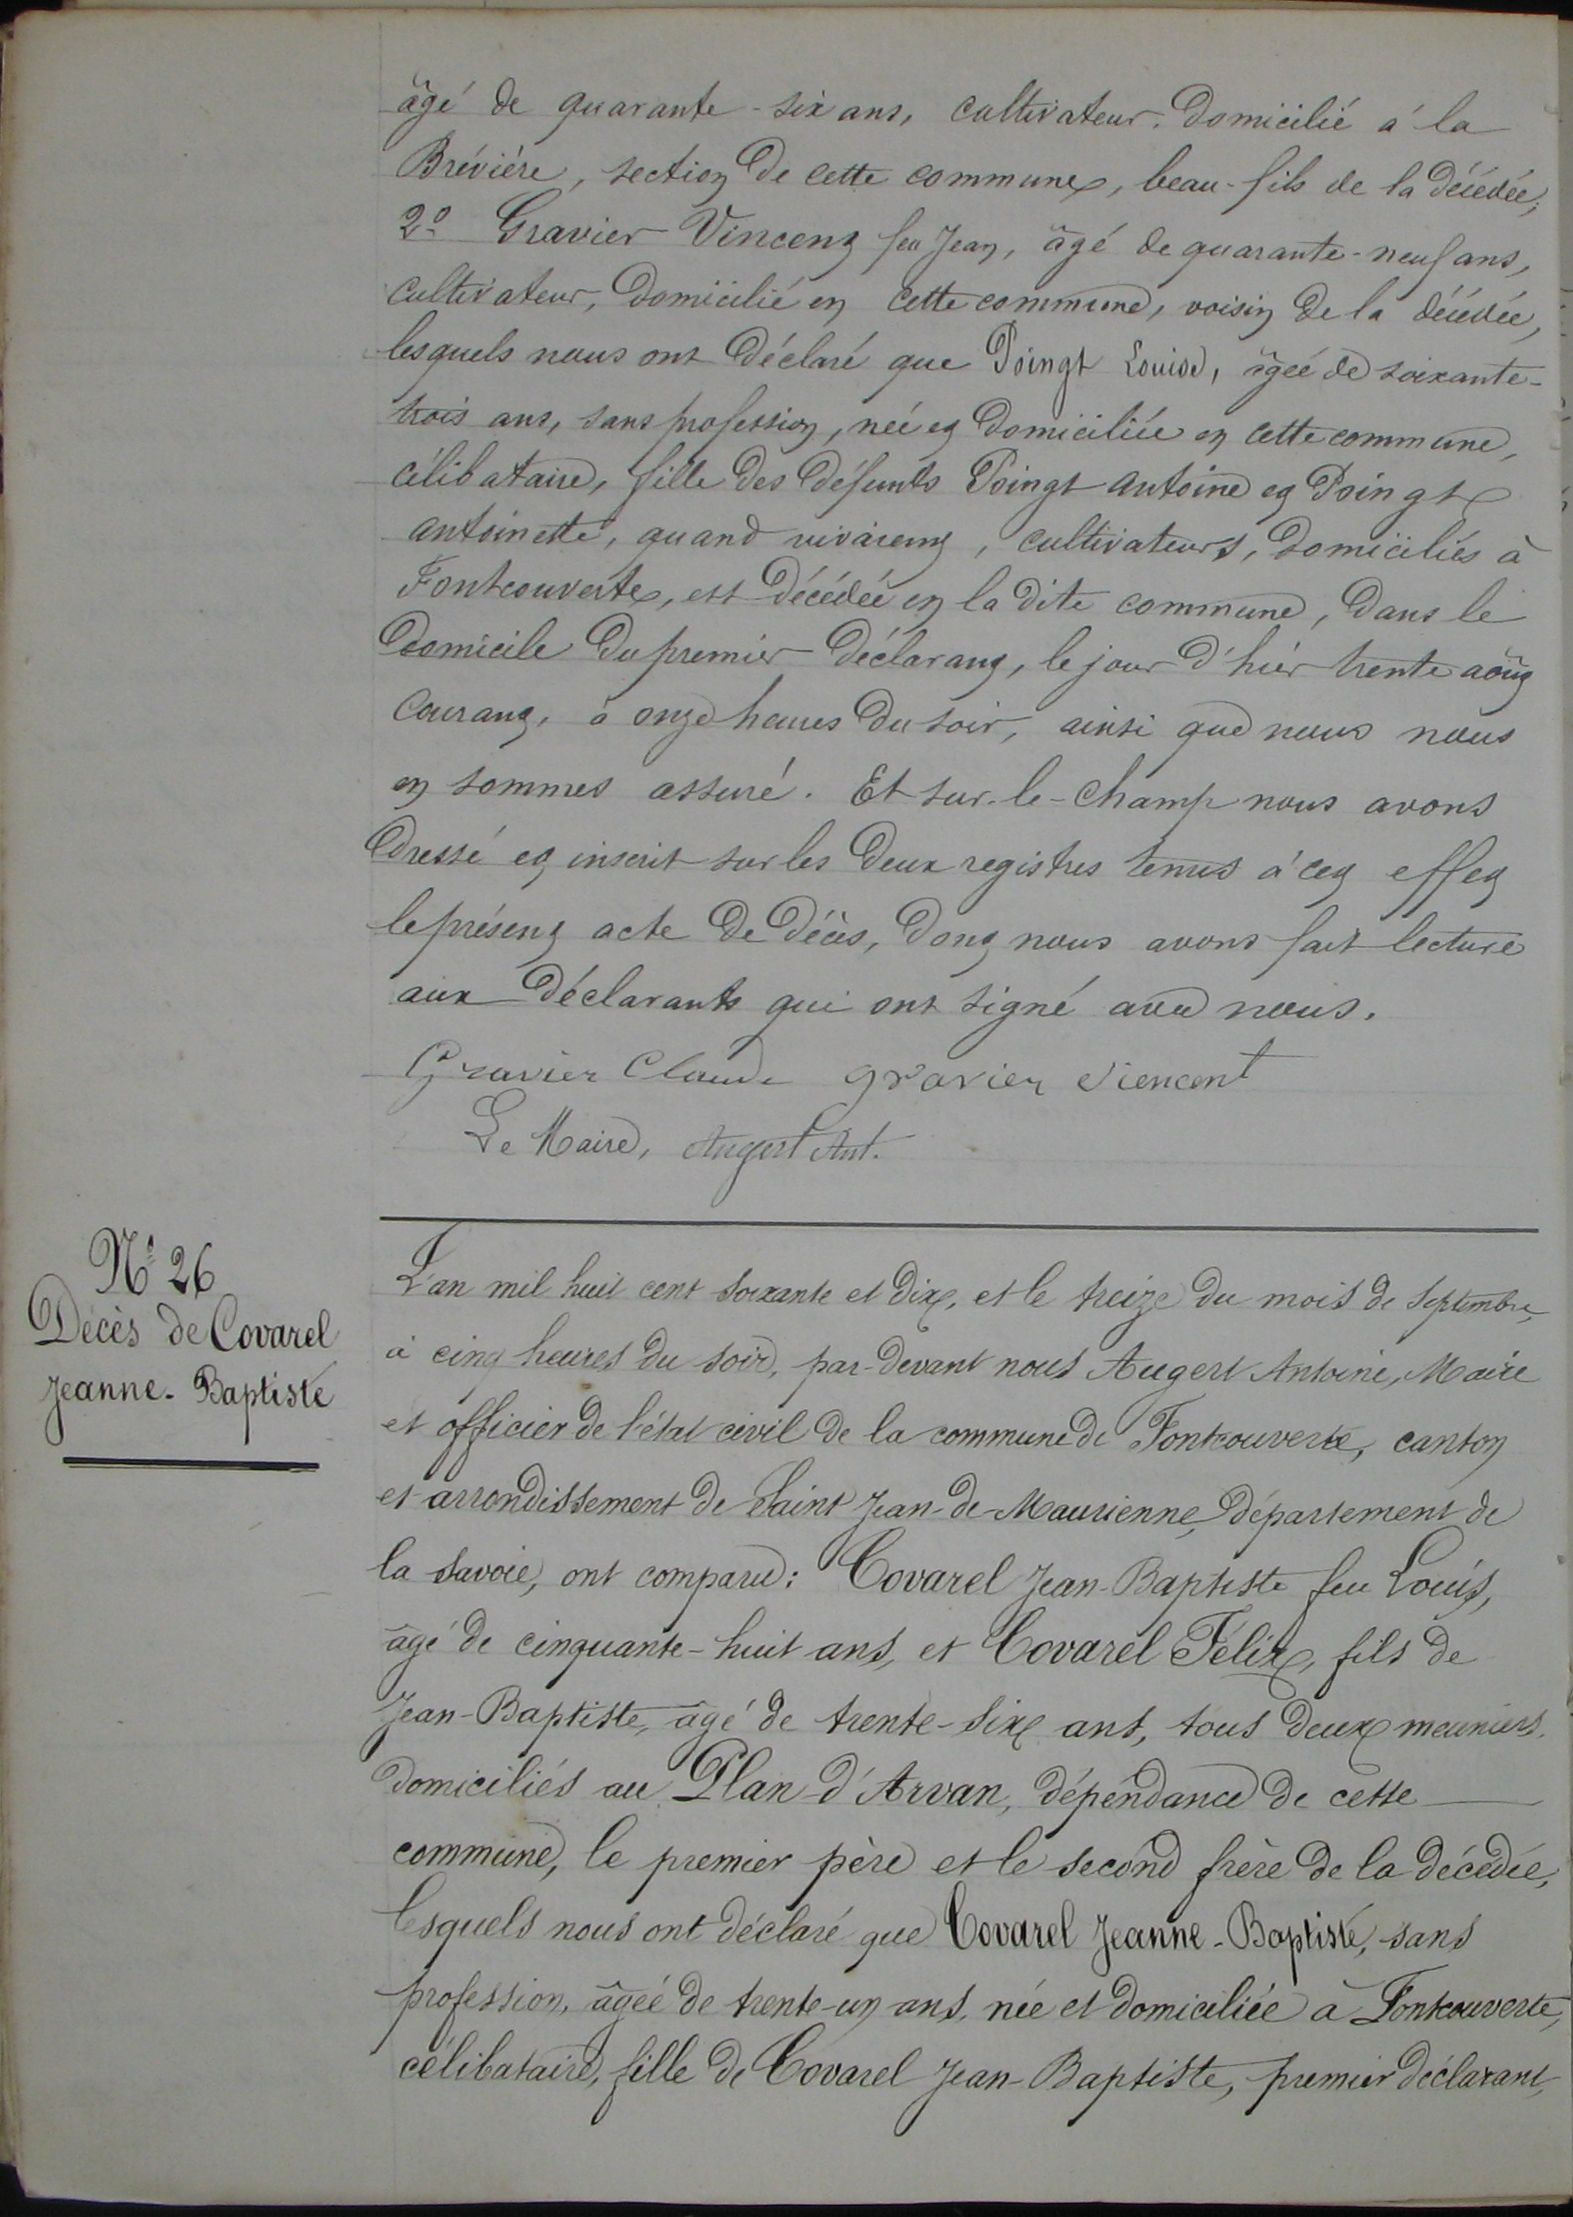 âgé de quarante-six ans, cultivateur, domicilié à la
Brévière, section de cette commune, beau-fils de la décédée;
2º Gravier Vincent feu Jean, âgé de quarante-neuf ans,
cultivateur, domicilié en cette commune, voisin de la décédée,
lesquels nous ont déclaré que Poingt Louise, âgée de soixante-
trois ans, sans profession, née et domiciliée en cette commune,
célibataire, fille des défunts Poingt Antoine et Poingt
Antoinette, quand vivaient, cultivateurs, domiciliés à
Fontcouverte, est décédée en la dite commune, dans le
domicile du premier déclarant, le jour d'hier trente août
courant, à onze heures du soir, ainsi que nous nous
en sommes assuré. Et sur-le-champ nous avons
dressé et inscrit sur les deux registres tenus à cet effet
le présent acte de décès, dont nous avons fait lecture
aux déclarants qui ont signé avec nous.
Gravier Claude gravier viencent
Le Maire, Augert Ant.
Nº 26
Décès de Covarel
Jeanne-Baptiste
L'an mil huit cent soixante et dix, et le treize du mois de septembre,
à cinq heures du soir, par-devant nous Augert Antoine, Maire
et officier de l'état civil de la commune de Fontcouverte, canton
et arrondissement de Saint Jean-de-Maurienne, département de
la Savoie, ont comparu: Covarel Jean-Baptiste feu Louis,
âgé de cinquante-huit ans, et Covarel Félix, fils de
Jean-Baptiste, âgé de trente-six ans, tous deux meuniers,
domiciliés au Plan d'Arvan, dépendance de cette
commune, le premier père et le second frère de la décédée,
lesquels nous ont déclaré que Covarel Jeanne-Baptiste, sans
profession, âgée de trente-un ans, née et domiciliée à Fontcouverte,
célibataire, fille de Covarel Jean-Baptiste, premier déclarant,